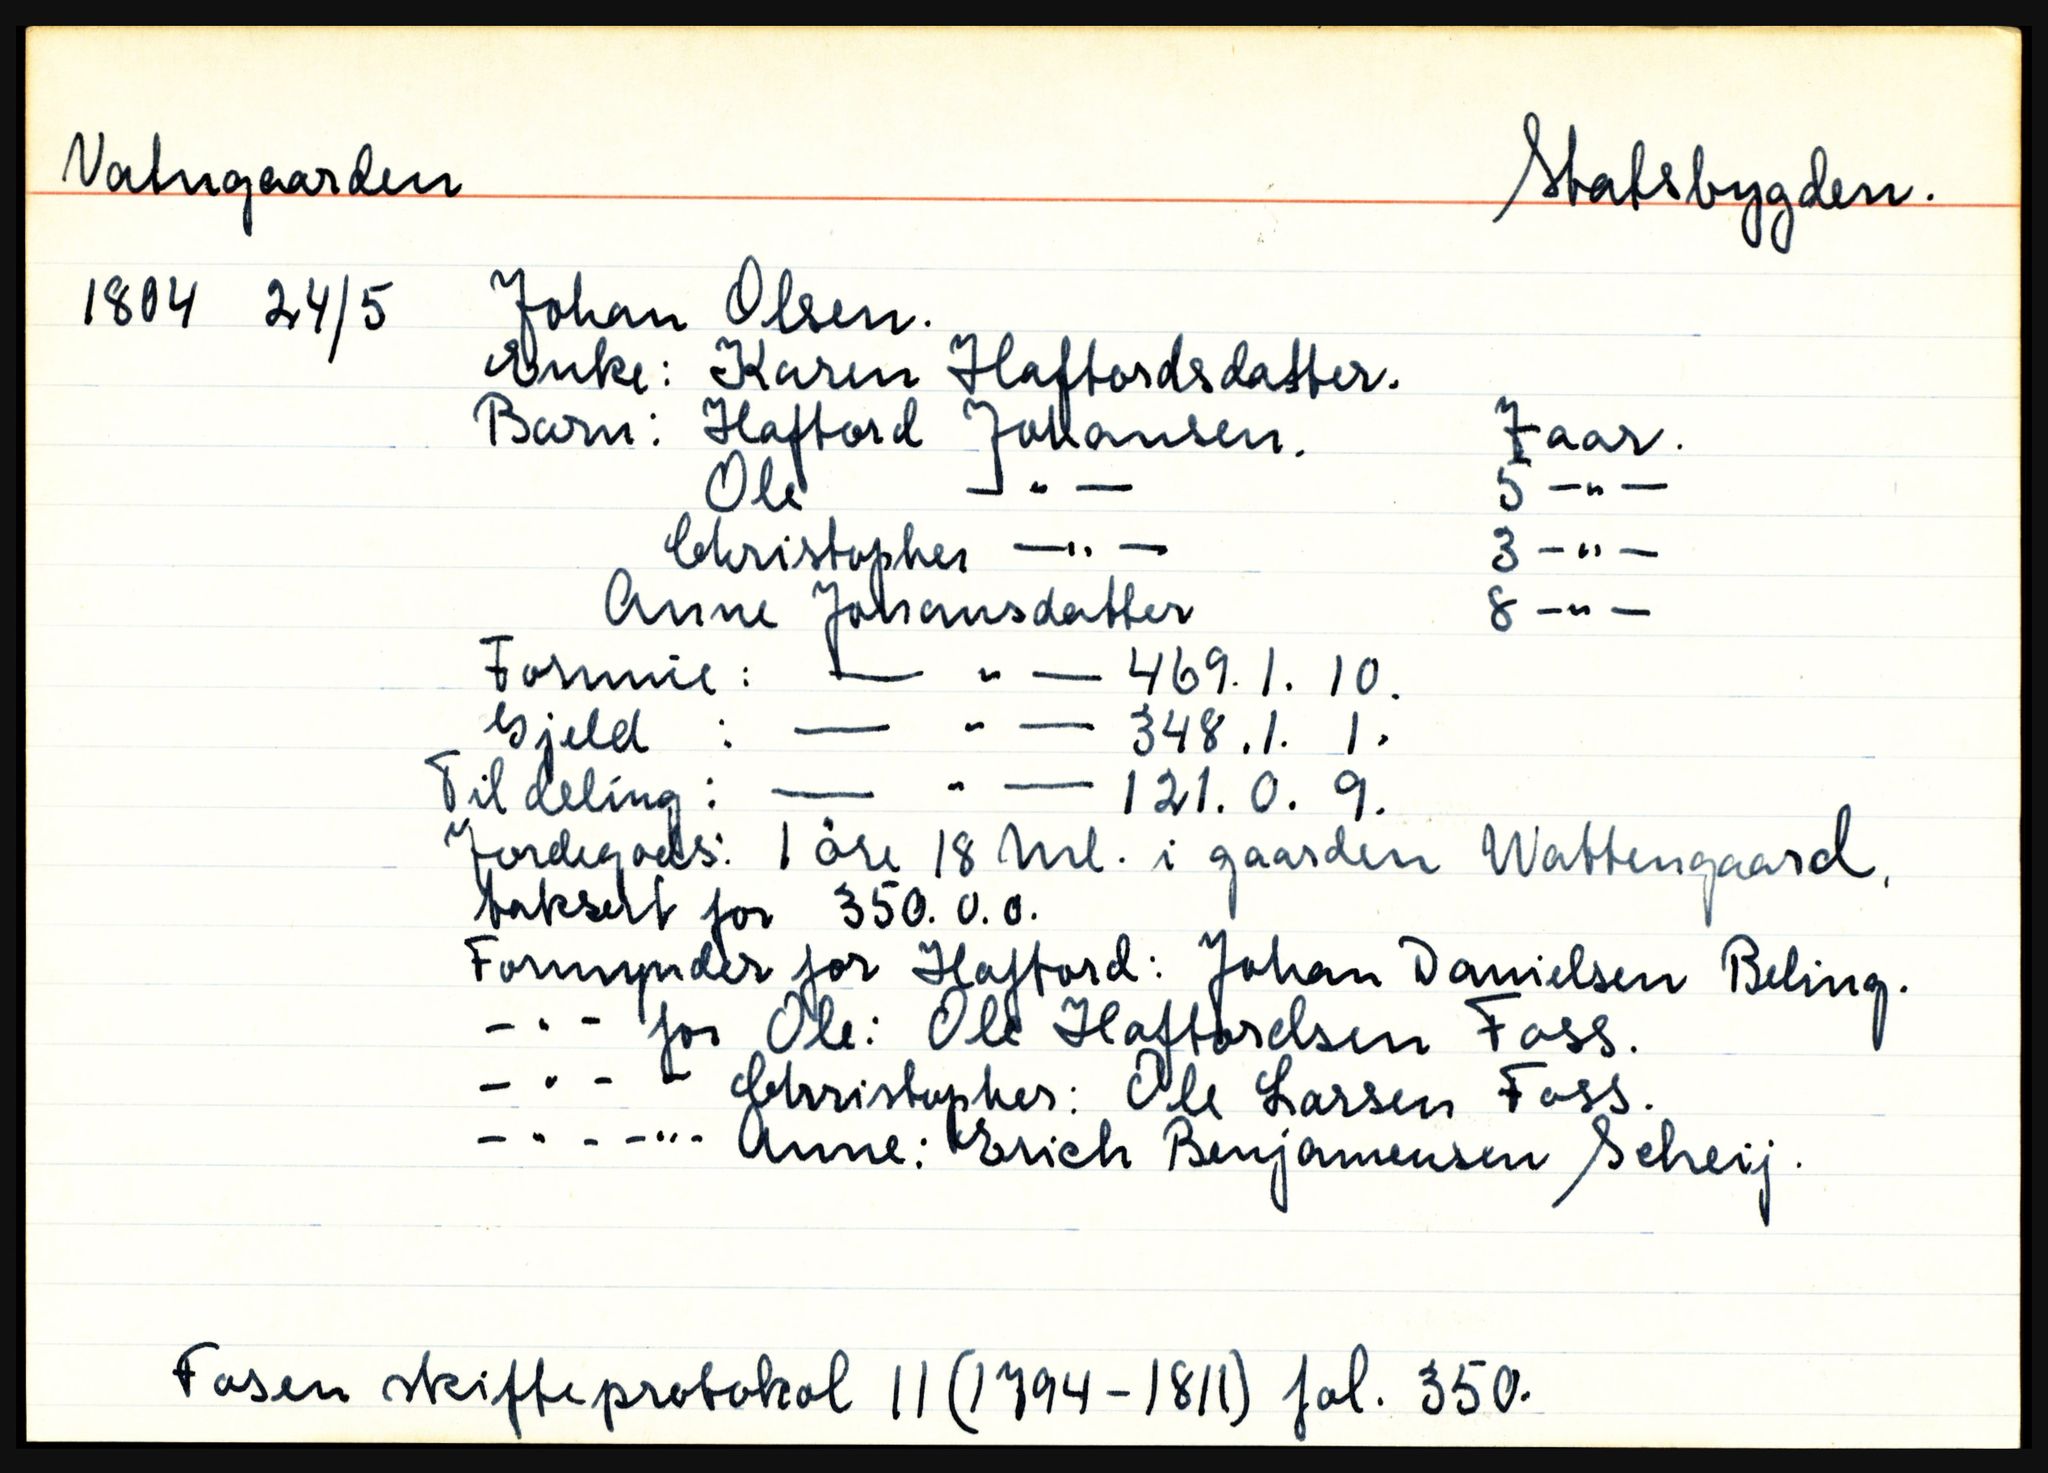 Vatngaarden Statsbygden.
1804 24/5 Johan Olsen.
Enke: Karen Haftordsdatter.
Barn: Haftord Johansen. 7 aar.
Ole — " — 5 — " —
Christopher — " — 3 — " —
Anne Johansdatter 8 — " —
Formue: — " — 469. 1. 10.
Gjeld : — " — 348. 1. 1.
Til deling: — " — 121. 0. 9.
Jordegods: 1 öre 18 Ml. i gaarden Wattengaard,
taksert for 350. 0. 0.
Formynder for Haftord: Johan Danielsen Beling.
- " - for Ole: Ole Haftordsen Foss.
- " - - Christopher: Ole Larsen Foss.
- " - - " - Anne: Erich Benjamensen Scheij.
Fosen skifteprotokol 11 (1794-1811) fol. 350.